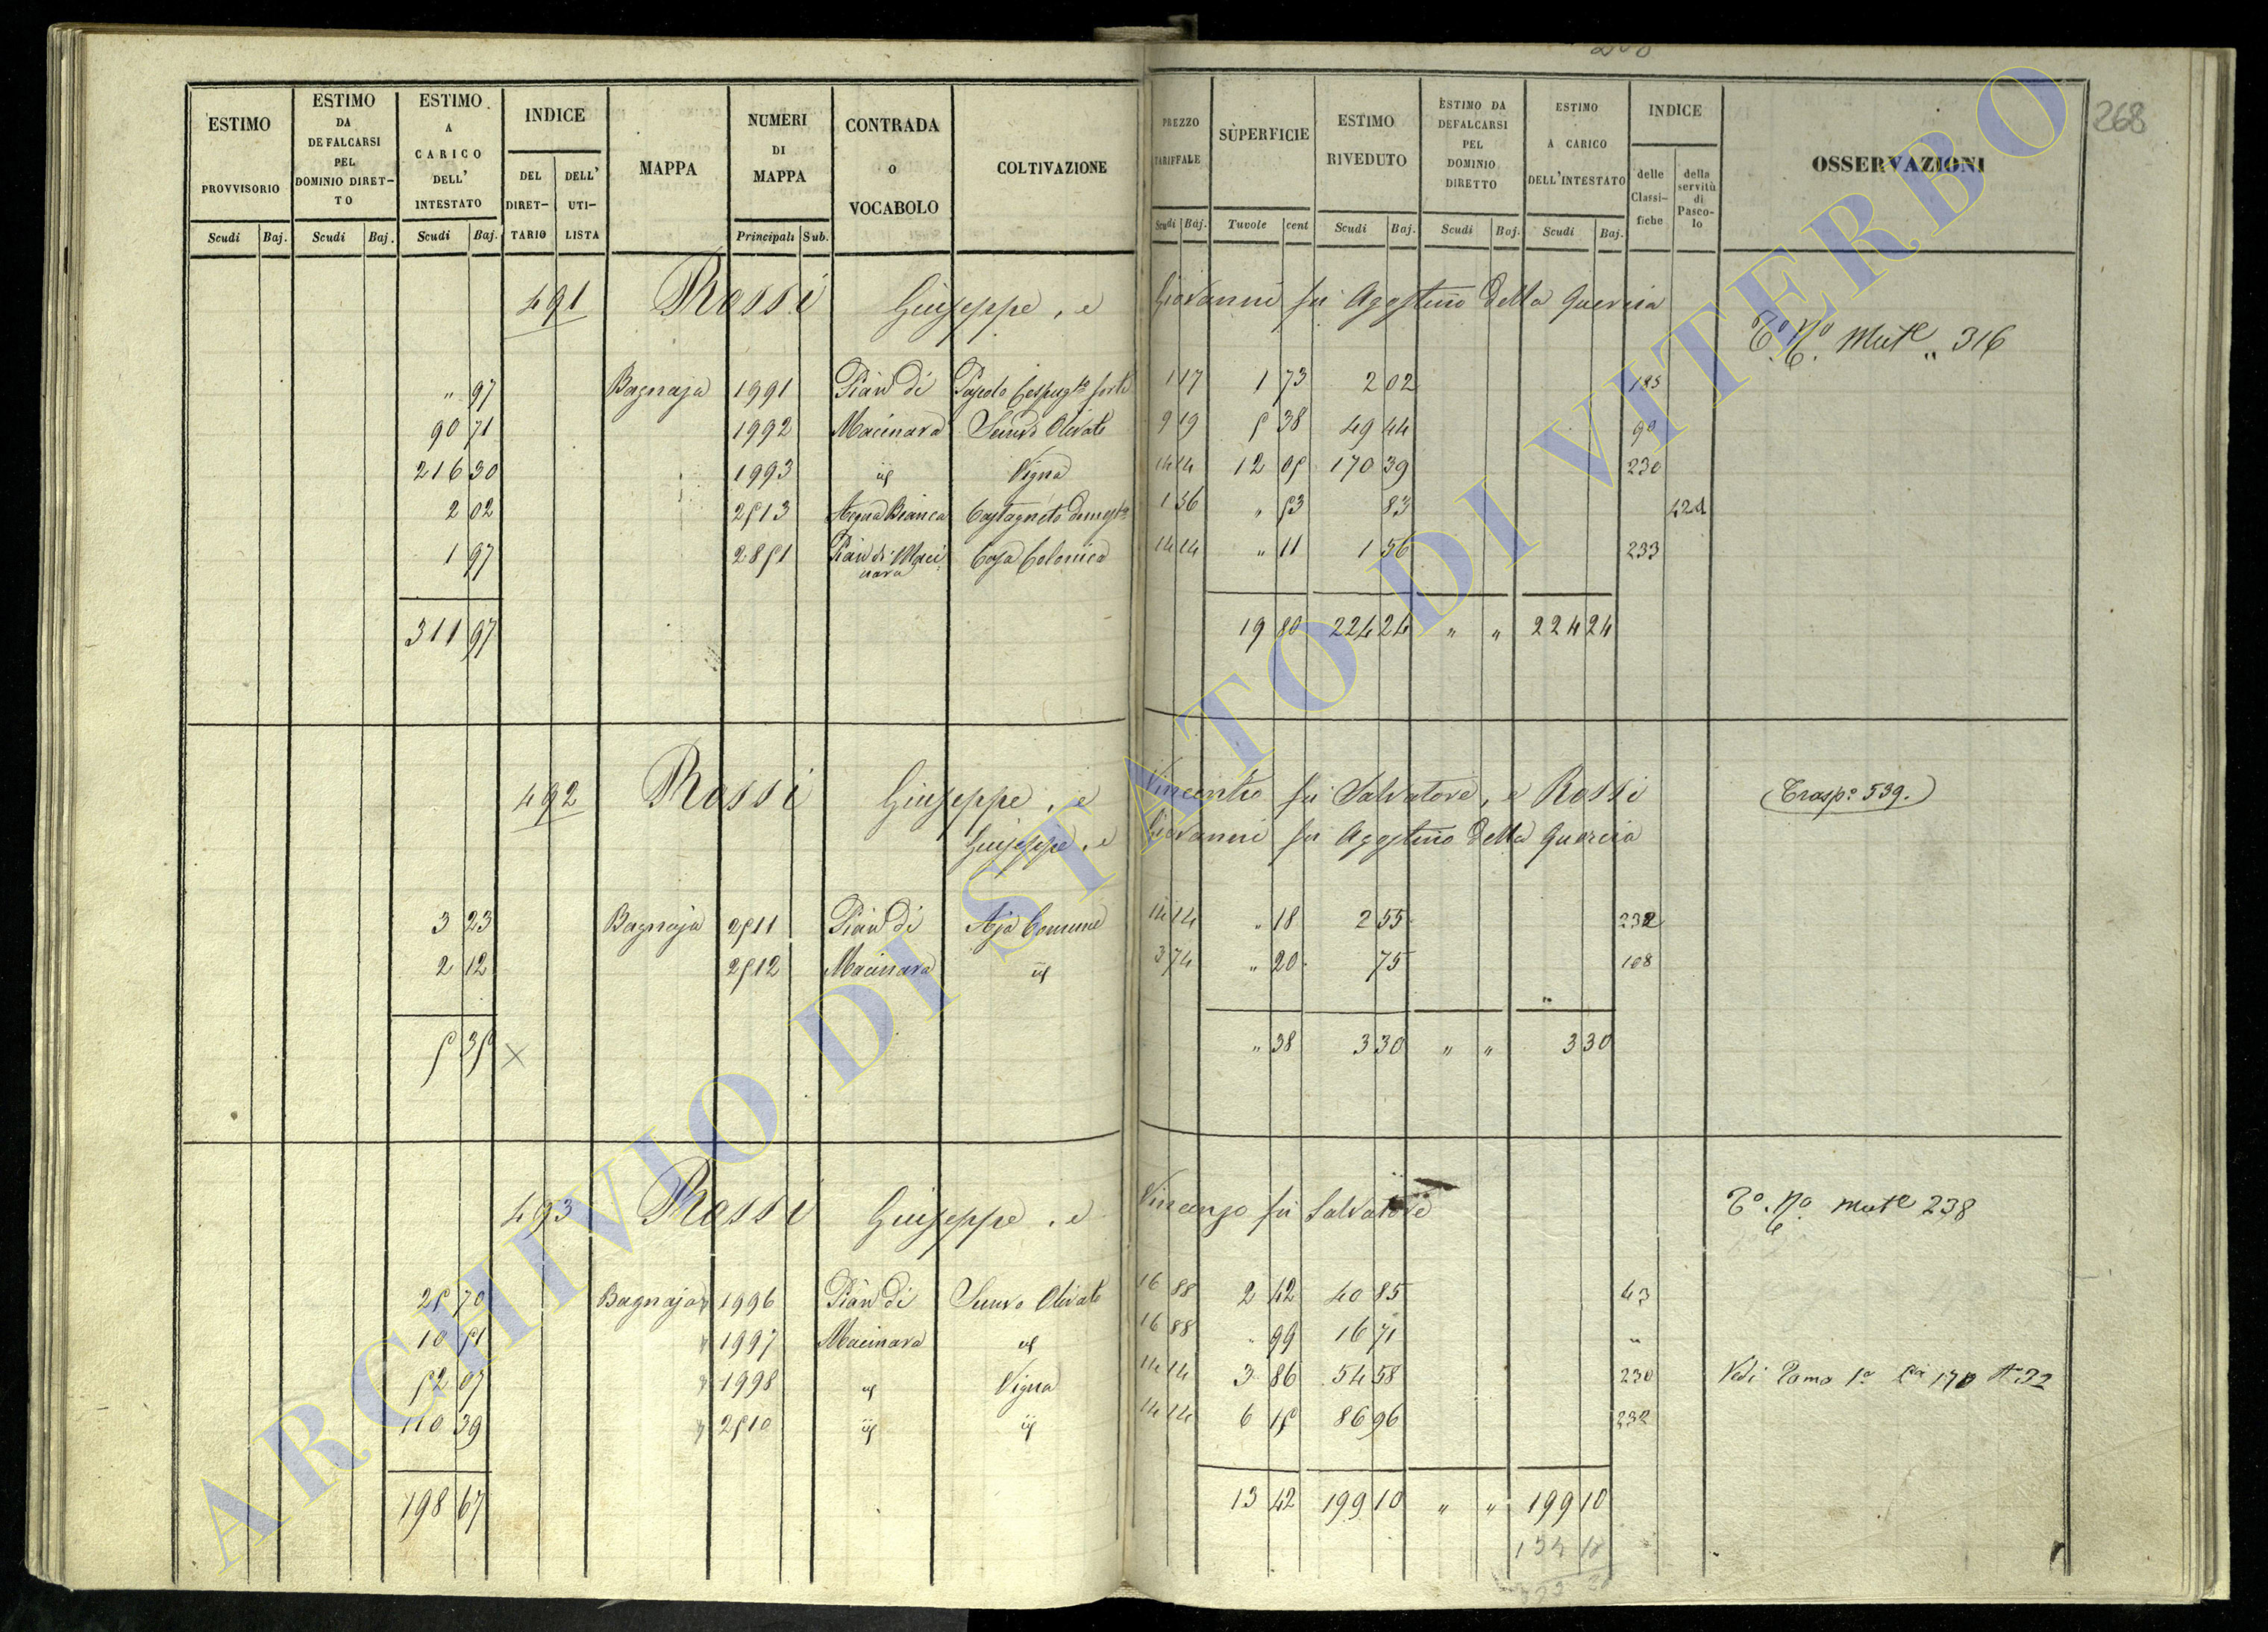 268
ESTIMO PROVVISORIO | ESTIMO DA DEFALCARSI PEL DOMINIO DIRET-TO | ESTIMO A CARICO DELL' INTESTATO | INDICE DEL DIRET-TARIO | DELL' UTI-LISTA | MAPPA | NUMERI DI MAPPA | CONTRADA O VOCABOLO | COLTIVAZIONE | PREZZO TARIFFALE | SUPERFICIE | ESTIMO RIVEDUTO | ESTIMO DA DEFALCARSI PEL DOMINIO DIRETTO | ESTIMO A CARICO DELL'INTESTATO | INDICE delle Classi-fiche | della servitù di Pasco-lo | OSSERVAZIONI
Scudi Baj. Scudi Baj. Scudi Baj. Principali Sub. Scudi Baj. Tavole cent Scudi Baj. Scudi Baj. Scudi Baj.
491 Rossi Giuseppe, e Giovanni fu Agostino della Quercia
Mut.e 316
" 97 Bagnaja 1991 Pian di 1 17 1 73 2 02 185
90 71 1992 Macinara Semvo Olivato 9 19 5 38 49 44 90
216 30 1993 id Vigna 14 14 12 05 170 39 230
2 02 2513 Acqua Bianca Castagneto domest.o 1 56 " 53 83
1 97 2851 Pian di Maci nara Casa Colonica 14 14 " 11 1 56 233
311 97 19 80 224 24 " " 224 24
492 Rossi Giuseppe, e Vincentio fu Salvatore, e Rossi (Trasp.o 539.)
Giuseppe, e Giovanni fu Agostino della Quercia
3 23 Bagnaja 2511 Pian di Aja Comune 14 14 " 18 2 55 232
2 12 2512 Macinara id 3 74 " 20 75 108
5 35 × " 38 3 30 " " 3 30
493 Rossi Giuseppe, e Vincenzo fu Salvatore Mut.e 238
25 70 Bagnaja 1996 Pian di Semvo Olivato 16 88 2 42 40 85 43
10 51 1997 Macinara id 16 88 " 99 16 71 "
52 07 1998 id Vigna 14 14 3 86 54 58 230 Vedi Tomo 1o
110 39 2510 id id 14 14 6 15 86 96 232
198 67 13 42 199 10 " " 199 10
134 18
ARCHIVIO DI STATO DI VITERBO